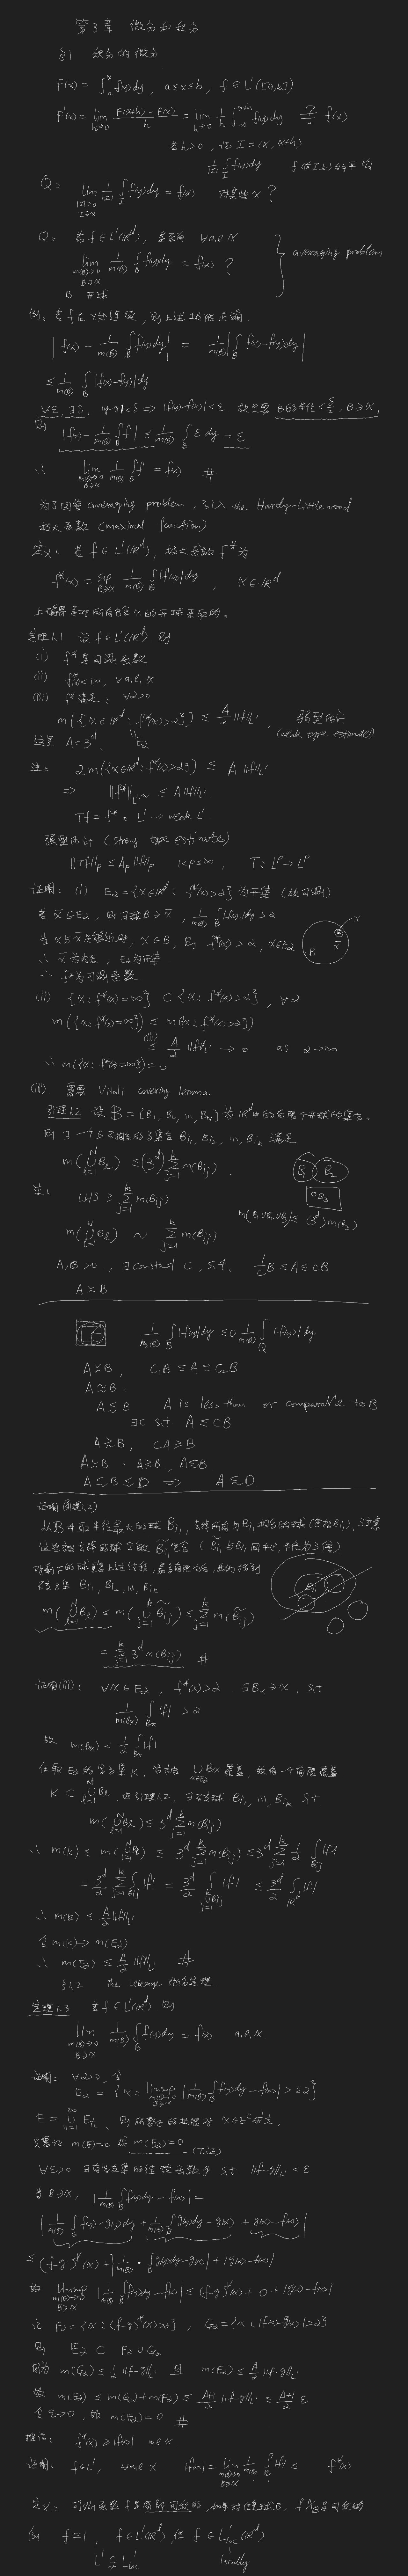 第3章 微分和积分
§1 积分的微分
F(x) = ∫_a^x f(y)dy, a≤x≤b, f∈L'([a,b])
F'(x) = lim_{h→0} (F(x+h)-F(x))/h = lim_{h→0} 1/h ∫_x^{x+h} f(y)dy ?= f(x)
若h>0, 记 I=(x, x+h)
1/|I| ∫_I f(y)dy f在I上的平均
Q: lim_{|I|→0, I∋x} 1/|I| ∫_I f(y)dy = f(x) 对某些x?
Q: 若f∈L'(ℝ^d), 是否有 ∀a.e x
lim_{m(B)→0, B∋x, B开球} 1/m(B) ∫_B f(y)dy = f(x) ? } averaging problem
例: 若f在x处连续, 则上述极限正确.
|f(x) - 1/m(B) ∫_B f(y)dy| = 1/m(B) |∫_B f(x)-f(y)dy|
≤ 1/m(B) ∫_B |f(x)-f(y)|dy
∀ε, ∃δ, |y-x|<δ => |f(y)-f(x)|<ε 故只要B的半径<δ/2, B∋x,
则 |f(x) - 1/m(B) ∫_B f| ≤ 1/m(B) ∫_B ε dy = ε
∴ lim_{m(B)→0, B∋x} 1/m(B) ∫_B f = f(x) #
为了回答averaging problem, 引入 the Hardy-Littlewood
极大函数 (maximal function)
定义: 若f∈L'(ℝ^d), 极大函数f*为
f*(x) = sup_{B∋x} 1/m(B) ∫_B |f(y)|dy, x∈ℝ^d
上确界是对所有包含x的开球来取的.
定理1.1 设f∈L'(ℝ^d) 则
(i) f*是可测函数
(ii) f*(x)<∞, ∀a.e. x
(iii) f*满足: ∀α>0
m({x∈ℝ^d: f*(x)>α}) ≤ A/α ‖f‖_{L'}, 弱型估计 (weak type estimate)
这里 A=3^d. E_α
注: α m({x∈ℝ^d: f*(x)>α}) ≤ A‖f‖_{L'}
=> ‖f*‖_{L^{1,∞}} ≤ A‖f‖_{L'}
Tf = f*: L' → weak L'
强型估计 (strong type estimates)
‖Tf‖_p ≤ A_p‖f‖_p 1<p≤∞, T: L^p→L^p
证明: (i) E_α={x∈ℝ^d: f*(x)>α}为开集 (故可测)
若x̄∈E_α, 则存在B∋x̄, 1/m(B) ∫_B |f(y)|dy>α
当x与x̄足够近时, x∈B, 则 f*(x)>α, x∈E_α
∴ x̄为内点, E_α为开集
∴ f*为可测函数
(ii) {x: f*(x)=∞} ⊂ {x: f*(x)>α}, ∀α
m({x: f*(x)=∞}) ≤ m({x: f*(x)>α})
(iii) ≤ A/α ‖f‖_{L'} → 0 as α→∞
∴ m({x: f*(x)=∞})=0
(iii) 需要 Vitali covering lemma
引理1.2 设 B={B_1, B_2, …, B_N}为ℝ^d中的有限个开球的集合.
则∃一个互不相交的子集合 B_{i1}, B_{i2}, …, B_{ik} 满足
m(∪_{l=1}^N B_l) ≤ (3^d) Σ_{j=1}^k m(B_{ij}).
注: LHS ≥ Σ_{j=1}^k m(B_{ij})
B_1 B_2 B_3
m(B_1∪B_2∪B_3) ≤ (3^d) m(B_3)
m(∪_{l=1}^N B_l) ~ Σ_{j=1}^k m(B_{ij})
A,B>0, ∃constant C, s.t. 1/C B ≤ A ≤ CB
A≍B
1/m(B) ∫_B |f(y)|dy ≤ C 1/m(Q) ∫_Q |f(y)|dy
A≍B, C_1B ≤ A ≤ C_2B
A≈B.
A≲B A is less than or comparable to B
∃C s.t A ≤ CB
A≳B, CA≥B
A≍B. A≳B, A≲B
A≲B≤D => A≲D
证明(引理1.2)
从B中取半径最大的球B_{i1}, 去掉所有与B_{i1}相交的球(包括B_{i1}), 注意
这些被去掉的球全被B̃_{i1}包含 (B̃_{i1}与B_{i1}同中心, 半径为3倍)
对剩下的球重复上述过程, 最多有限次后, 我们找到
不交子集 B_{i1}, B_{i2}, …, B_{ik}
m(∪_{l=1}^N B_l) ≤ m(∪_{j=1}^k B̃_{ij}) ≤ Σ_{j=1}^k m(B̃_{ij})
= Σ_{j=1}^k 3^d m(B_{ij}) #
证明(iii): ∀x∈E_α, f*(x)>α ∃B_x∋x, s.t
1/m(B_x) ∫_{B_x} |f| > α
故 m(B_x) < 1/α ∫_{B_x} |f|
任取E_α的紧子集K, 它被 ∪_{x∈E_α} B_x 覆盖, 故有一个有限覆盖
K ⊂ ∪_{l=1}^N B_l. 由引理1.2, ∃不交球 B_{i1}, …, B_{ik} s.t
m(∪_{l=1}^N B_l) ≤ 3^d Σ_{j=1}^k m(B_{ij})
∴ m(K) ≤ m(∪_{l=1}^N B_l) ≤ 3^d Σ_{j=1}^k m(B_{ij}) ≤ 3^d Σ_{j=1}^k 1/α ∫_{B_{ij}} |f|
= 3^d/α Σ_{j=1}^k ∫_{B_{ij}} |f| = 3^d/α ∫_{∪_{j=1}^k B_{ij}} |f| ≤ 3^d/α ∫_{ℝ^d} |f|
∴ m(K) ≤ A/α ‖f‖_{L'}
令m(K)→m(E_α)
∴ m(E_α) ≤ A/α ‖f‖_{L'} #
§1.2 the Lebesgue 微分定理
定理1.3 若f∈L'(ℝ^d) 则
lim_{m(B)→0, B∋x} 1/m(B) ∫_B f(y)dy = f(x) a.e. x
证明: ∀α>0, 令
E_α = {x: limsup_{m(B)→0, B∋x} |1/m(B) ∫_B f(y)dy - f(x)| > 2α}
E = ∪_{n=1}^∞ E_{1/n}, 则所要证的极限对x∈E^c成立.
只要证 m(E)=0 或 m(E_α)=0
∀ε>0 ∃有紧支集的连续函数g s.t ‖f-g‖_{L'} < ε
当B∋x, |1/m(B) ∫_B f(y)dy - f(x)| =
|1/m(B) ∫_B f(y)-g(y)dy + 1/m(B) ∫_B g(y)dy - g(x) + g(x)-f(x)|
≤ (f-g)*(x) + |1/m(B) · ∫_B g(y)dy - g(x)| + |g(x)-f(x)|
故 limsup_{m(B)→0, B∋x} |1/m(B) ∫_B f(y)dy - f(x)| ≤ (f-g)*(x) + 0 + |g(x)-f(x)|
记 F_α={x: (f-g)*(x)>α}, G_α={x: |f(x)-g(x)|>α}
则 E_α ⊂ F_α∪G_α
因为 m(G_α) ≤ 1/α ‖f-g‖_{L'} 且 m(F_α) ≤ A/α ‖f-g‖_{L'}
故 m(E_α) ≤ m(G_α)+m(F_α) ≤ (A+1)/α ‖f-g‖_{L'} ≤ (A+1)/α ε
令ε→0, 故 m(E_α)=0 #
推论: f*(x) ≥ |f(x)| a.e x
证明: f∈L', ∀a.e x |f(x)| = lim_{m(B)→0, B∋x} 1/m(B) ∫_B |f| ≤ f*(x)
定义: 可测函数f是局部可积的, 如果对任意球B, fχ_B是可积的
例 f≡1, f∉L'(ℝ^d), 但 f∈L'_{loc}(ℝ^d)
L' ⊊ L'_{loc} locally